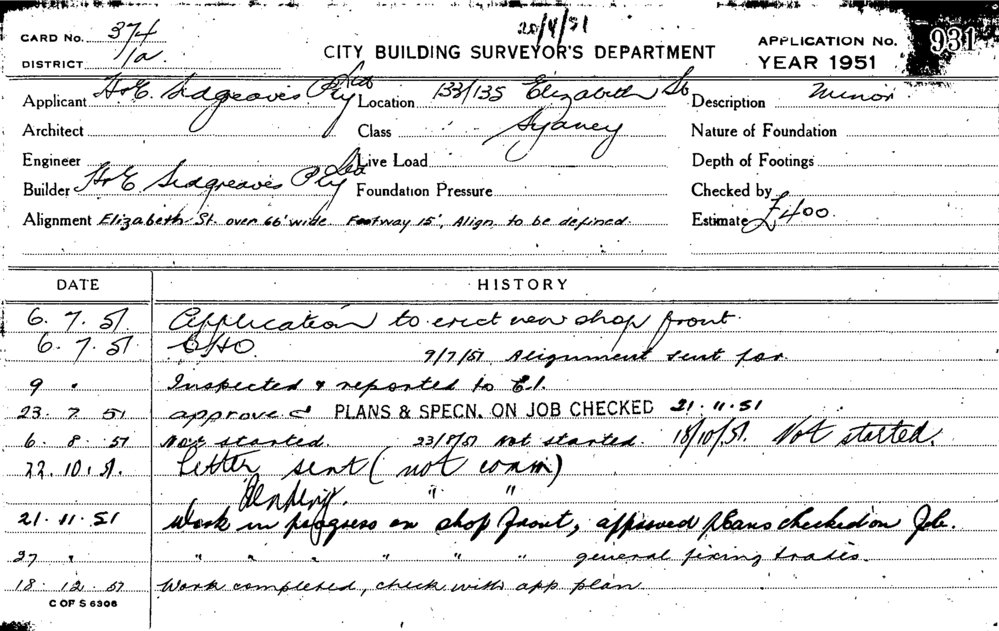 20/4/51
CARD No. 374
DISTRICT 11a.
CITY BUILDING SURVEYOR'S DEPARTMENT
APPLICATION No. 931
YEAR 1951
Applicant H & E. Sidgreaves Pty Ltd Location 133/135 Elizabeth St Description Minor
Architect Class Sydney Nature of Foundation
Engineer Live Load Depth of Footings
Builder H & E Sidgreaves Pty Ltd Foundation Pressure Checked by
Alignment Elizabeth St. over 66' wide. Footway 15', Align. to be defined. Estimate £400.
DATE HISTORY
6. 7. 51 Application to erect new shop front
6. 7. 51 9/7/51 Alignment sent for
9 " Inspected & reported to C.I.
23. 7 51 approved PLANS & SPECN. ON JOB CHECKED 21. 11. 51
6. 8. 51 Not started. 23/8/51 Not started. 18/10/51. Not started.
22. 10. 51. Letter sent (not comm)
Pending. " "
21. 11. 51 Work in progress on shop front, approved plans checked on Job.
27 " " " " " " " general fixing trades.
18. 12. 51 Work completed, check with app. plan
C OF S 6306